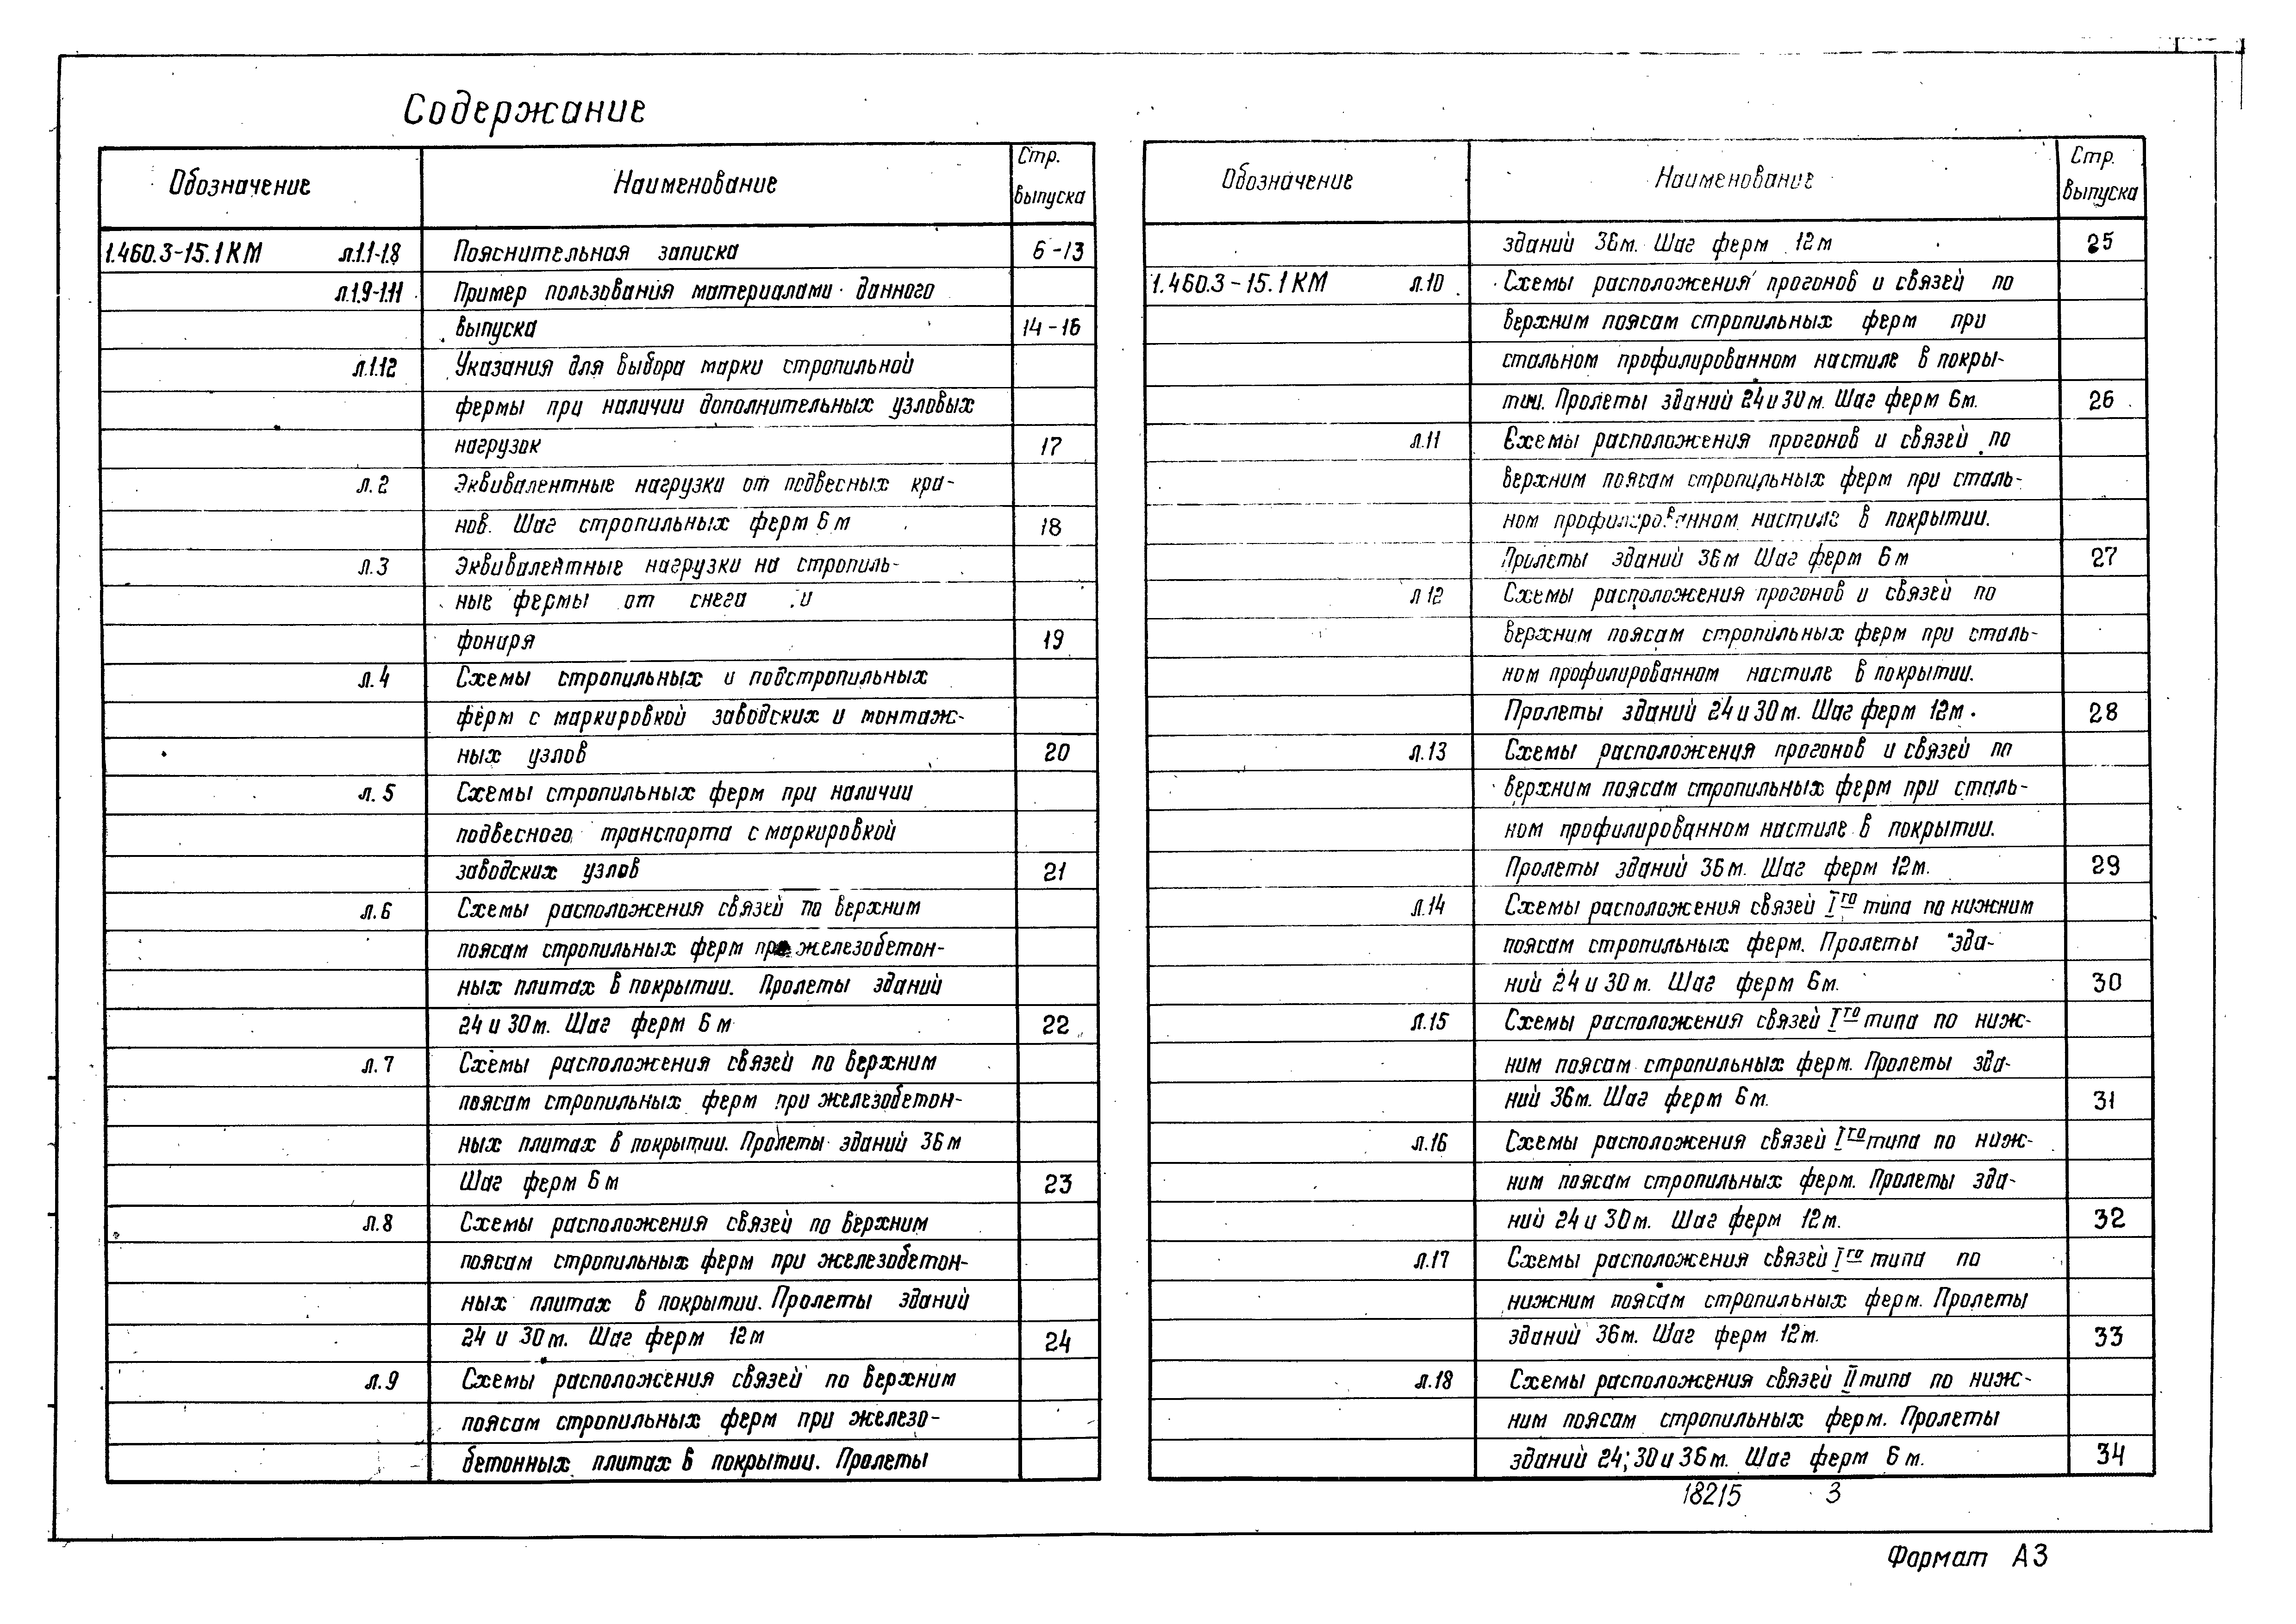 Содержание
Обозначение Наименование Стр. выпуска
1.460.3-15.1КМ л.1.1-1.8 Пояснительная записка 6-13
л.1.9-1.11 Пример пользования материалами данного
выпуска 14-16
л.1.12 Указания для выбора марки стропильной
фермы при наличии дополнительных узловых
нагрузок 17
л.2 Эквивалентные нагрузки от подвесных кра-
нов. Шаг стропильных ферм 6 м 18
л.3 Эквивалентные нагрузки на стропиль-
ные фермы от снега и
фонаря 19
л.4 Схемы стропильных и подстропильных
ферм с маркировкой заводских и монтаж-
ных узлов 20
л.5 Схемы стропильных ферм при наличии
подвесного транспорта с маркировкой
заводских узлов 21
л.6 Схемы расположения связей по верхним
поясам стропильных ферм при железобетон-
ных плитах в покрытии. Пролеты зданий
24 и 30м. Шаг ферм 6 м 22
л.7 Схемы расположения связей по верхним
поясам стропильных ферм при железобетон-
ных плитах в покрытии. Пролеты зданий 36м
Шаг ферм 6м 23
л.8 Схемы расположения связей по верхним
поясам стропильных ферм при железобетон-
ных плитах в покрытии. Пролеты зданий
24 и 30м. Шаг ферм 12м 24
л.9 Схемы расположения связей по верхним
поясам стропильных ферм при железо-
бетонных плитах в покрытии. Пролеты
Обозначение Наименование Стр. выпуска
зданий 36м. Шаг ферм 12м 25
1.460.3-15.1КМ л.10 Схемы расположения прогонов и связей по
верхним поясам стропильных ферм при
стальном профилированном настиле в покры-
тии. Пролеты зданий 24 и 30м. Шаг ферм 6м. 26
л.11 Схемы расположения прогонов и связей по
верхним поясам стропильных ферм при сталь-
ном профилированном настиле в покрытии.
Пролеты зданий 36м Шаг ферм 6м 27
л 12 Схемы расположения прогонов и связей по
верхним поясам стропильных ферм при сталь-
ном профилированном настиле в покрытии.
Пролеты зданий 24 и 30м. Шаг ферм 12м. 28
л.13 Схемы расположения прогонов и связей по
верхним поясам стропильных ферм при сталь-
ном профилированном настиле в покрытии.
Пролеты зданий 36м. Шаг ферм 12м. 29
л.14 Схемы расположения связей Iго типа по нижним
поясам стропильных ферм. Пролеты зда-
ний 24 и 30м. Шаг ферм 6м. 30
л.15 Схемы расположения связей Iго типа по ниж-
ним поясам стропильных ферм. Пролеты зда-
ний 36м. Шаг ферм 6м. 31
л.16 Схемы расположения связей Iго типа по ниж-
ним поясам стропильных ферм. Пролеты зда-
ний 24 и 30м. Шаг ферм 12м. 32
л.17 Схемы расположения связей Iго типа по
нижним поясам стропильных ферм. Пролеты
зданий 36м. Шаг ферм 12м. 33
л.18 Схемы расположения связей II типа по ниж-
ним поясам стропильных ферм. Пролеты
зданий 24; 30 и 36м. Шаг ферм 6 м. 34
18215 3
Формат А3